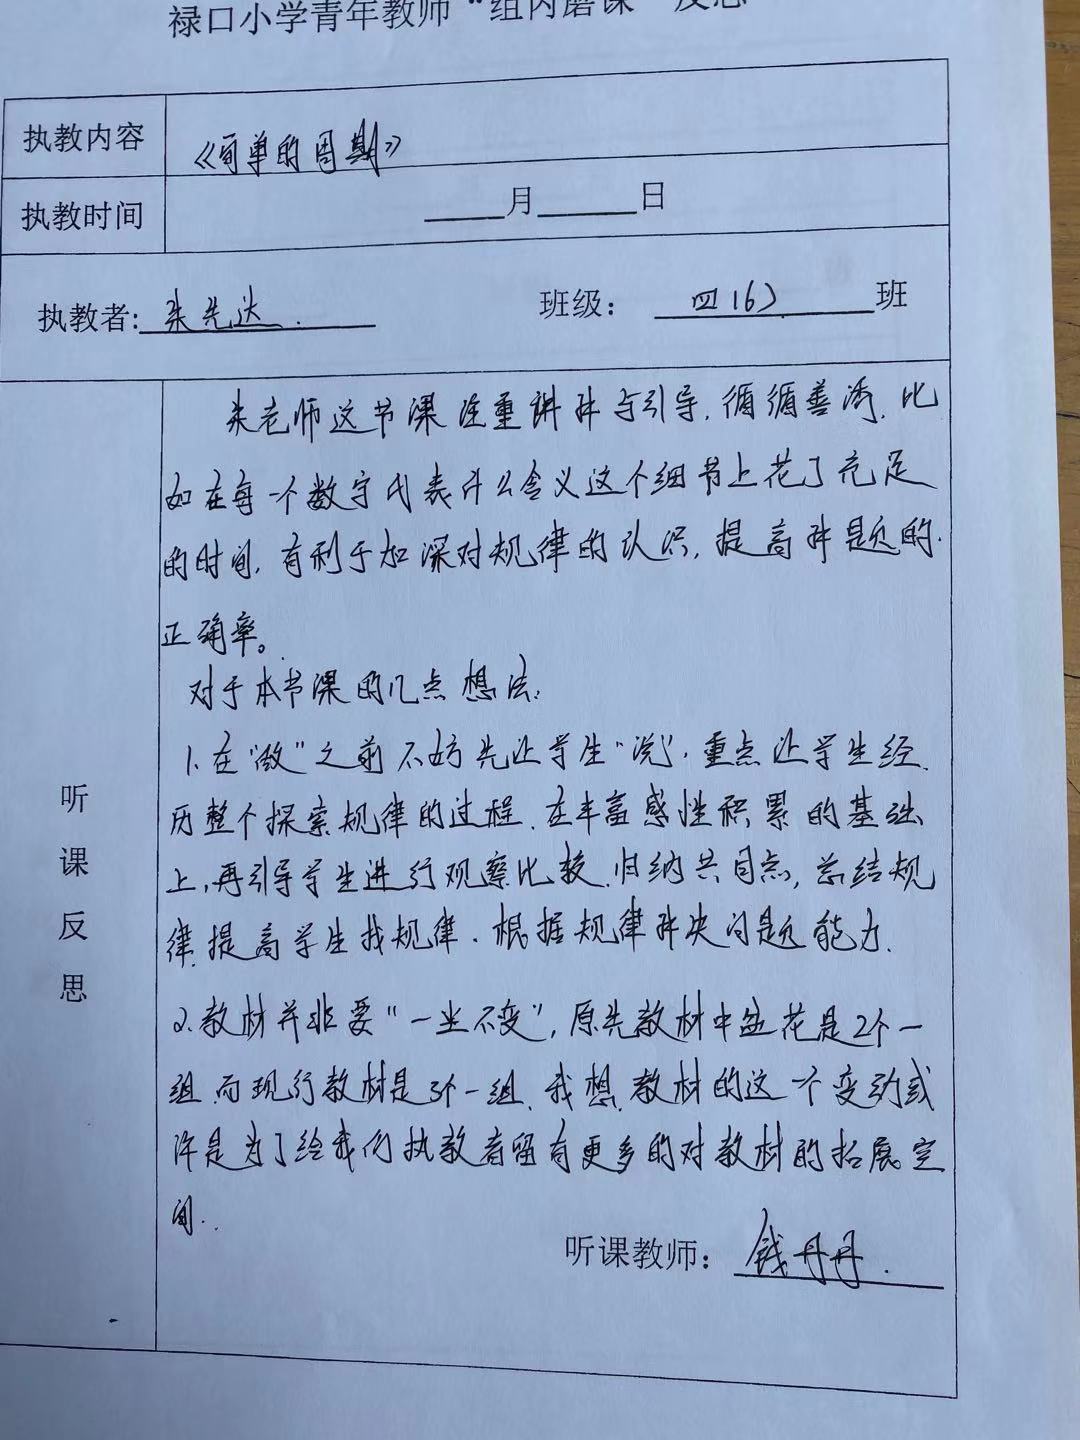 禄口小学青年教师“组内磨课”反思
执教内容 《简单的周期》
执教时间 ____月____日
执教者: 朱先达. 班级: 四(6) 班
朱老师这节课注重讲解与引导,循循善诱,比
如在每一个数字代表什么含义这个细节上花了充足
的时间,有利于加深对规律的认识,提高解题的
正确率。
对于本节课的几点想法:
1.在“做”之前不妨先让学生“说”,重点让学生经
历整个探索规律的过程,在丰富感性积累的基础
上,再引导学生进行观察比较,归纳共同点,总结规
律,提高学生找规律、根据规律解决问题能力.
2.教材并非要“一坐不变”,原先教材中盆花是2个一
组,而现行教材是3个一组,我想,教材的这一个变动或
许是为了给我们执教者留有更多的对教材的拓展空
间.
听课反思
听课教师: 钱丹丹.